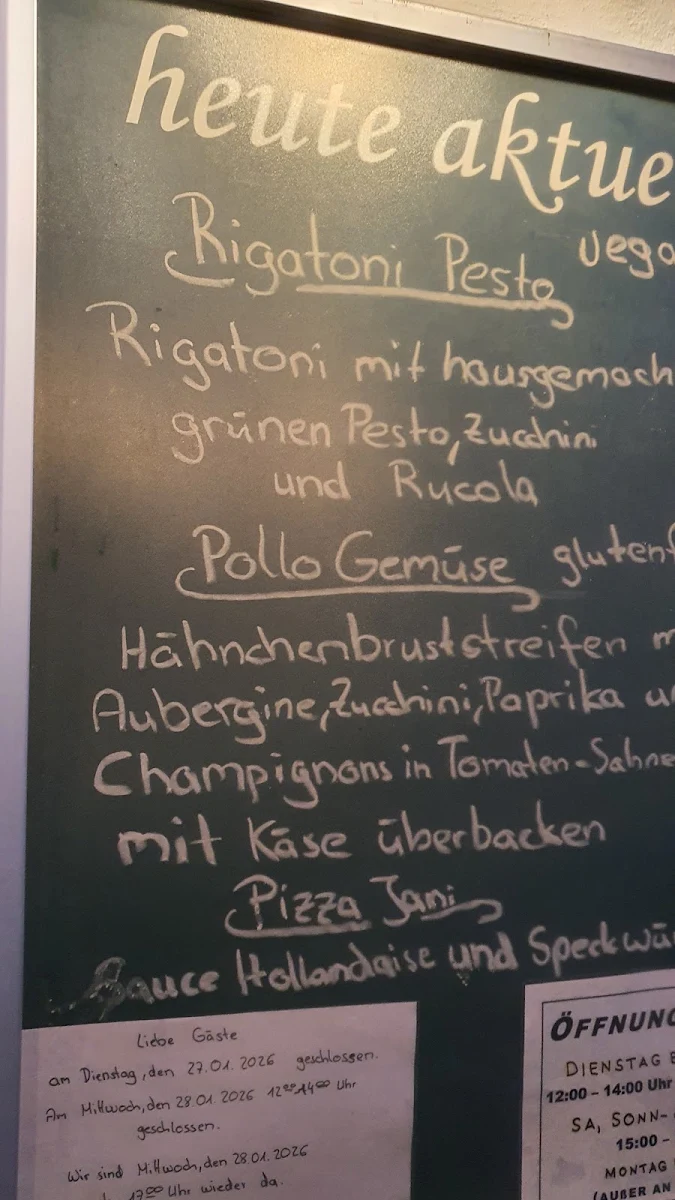 heute aktue
Rigatoni Pesto vega
Rigatoni mit hausgemach
grünen Pesto, Zucchini
und Rucola
Pollo Gemüse glutenf
Hähnchenbruststreifen m
Aubergine, Zucchini, Paprika un
Champignons in Tomaten-Sahne
mit Käse überbacken
Pizza Jani
Sauce Hollandaise und Speckwür
Liebe Gäste
am Dienstag, den 27.01.2026 geschlossen.
Am Mittwoch, den 28.01.2026 12⁰⁰-14⁰⁰ Uhr
geschlossen.
Wir sind Mittwoch, den 28.01.2026
17⁰⁰ Uhr wieder da.
ÖFFNUNG
DIENSTAG B
12:00 – 14:00 Uhr
SA, SONN-
15:00 –
MONTAG
(AUßER AN